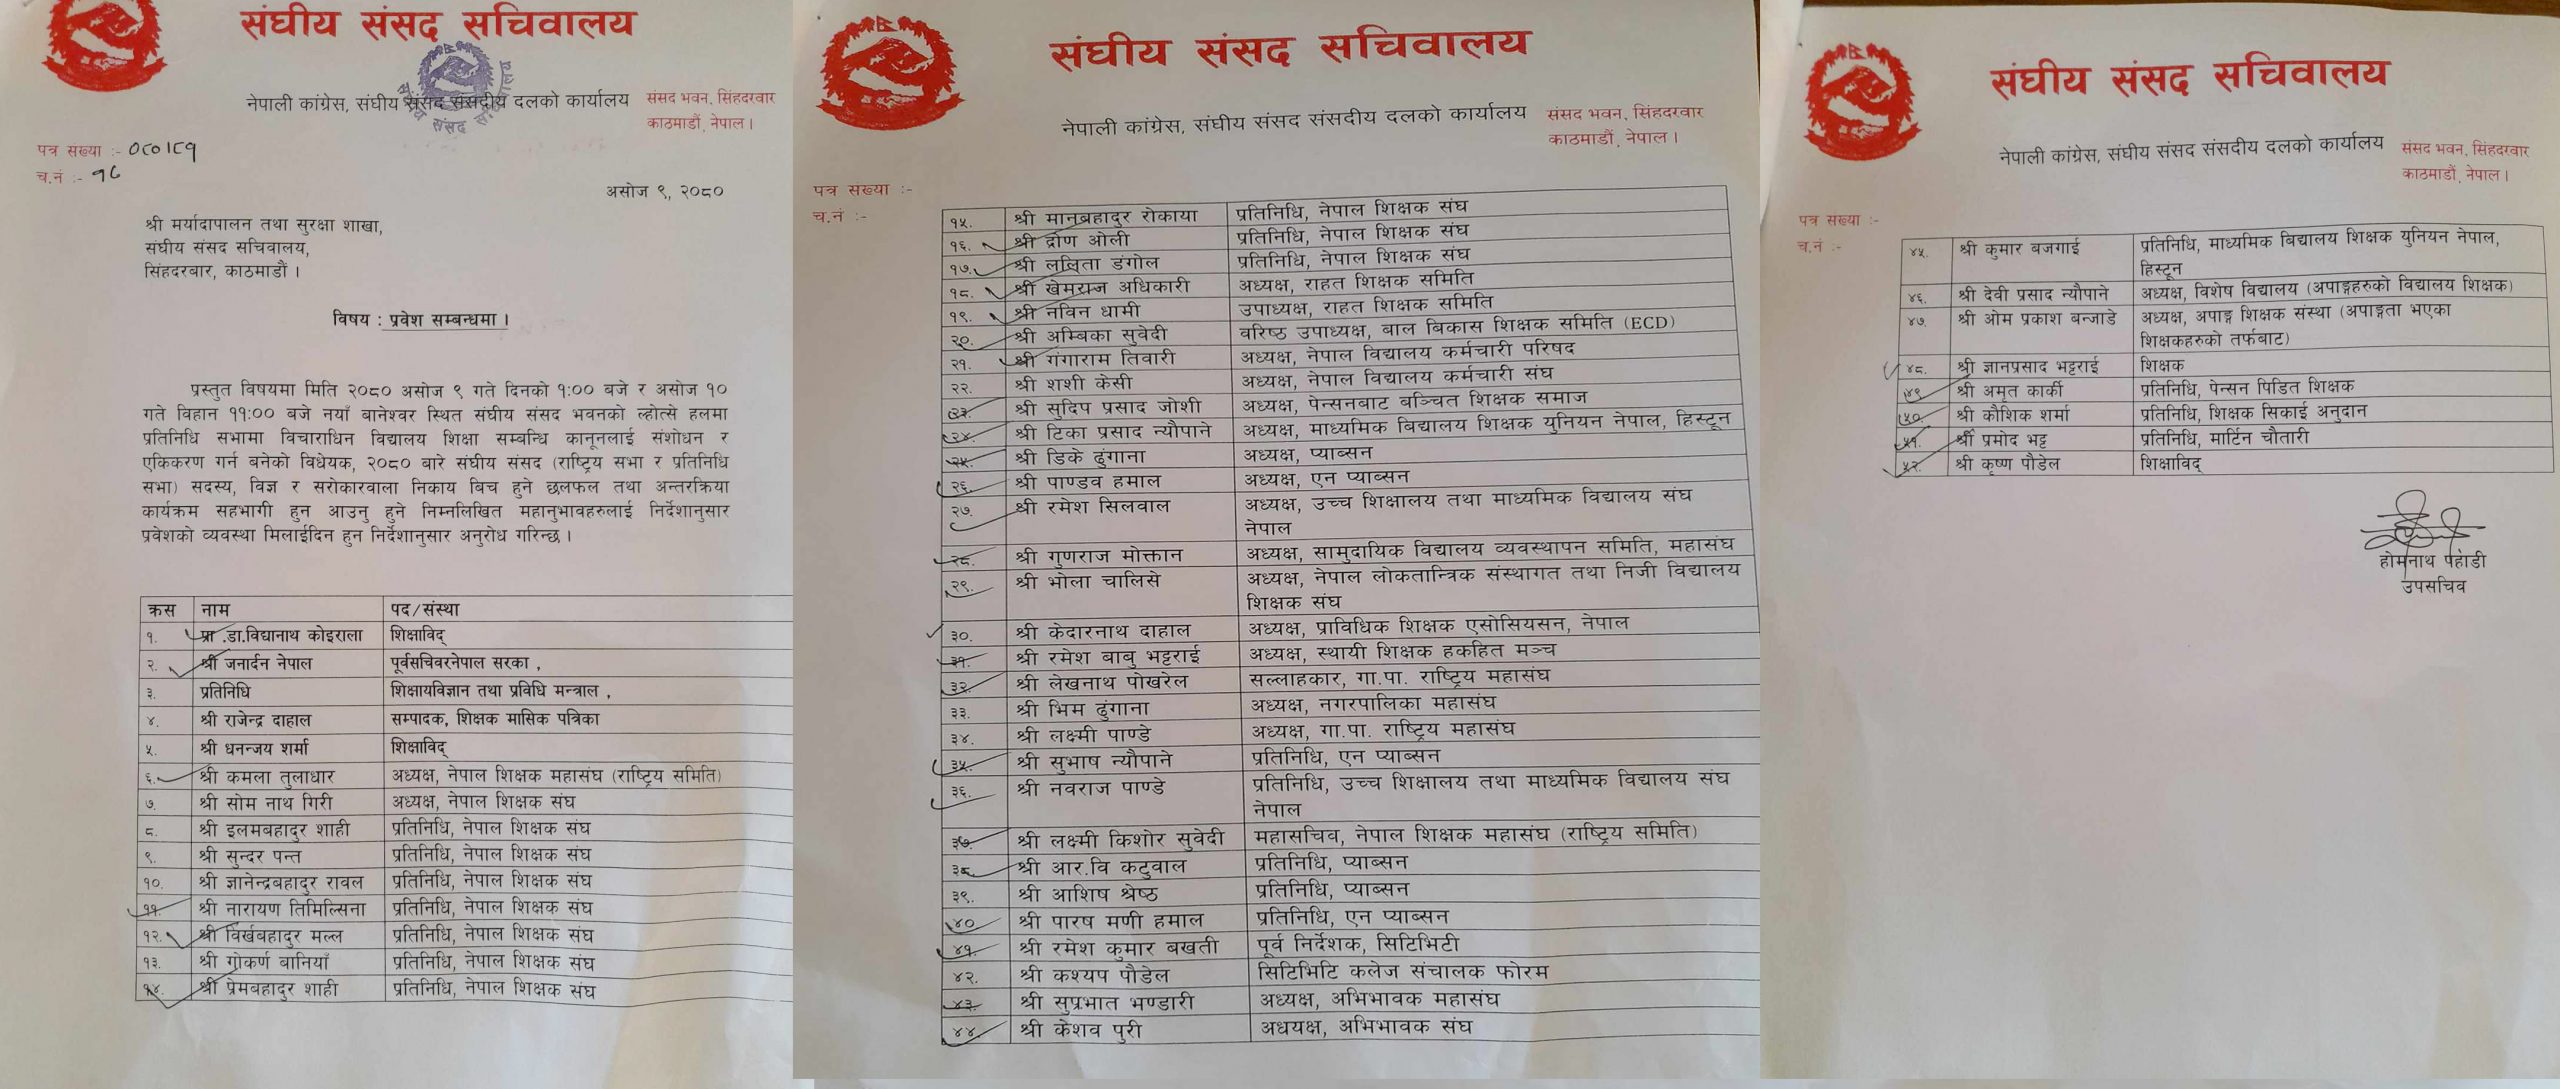 संघीय संसद सचिवालय
नेपाली कांग्रेस, संघीय संसद संसदीय दलको कार्यालय
संसद भवन, सिंहदरवार
काठमाडौं, नेपाल ।
पत्र संख्या :- ०८०।८१
च.नं :- १८
असोज ९, २०८०
श्री मर्यादापालन तथा सुरक्षा शाखा,
संघीय संसद सचिवालय,
सिंहदरबार, काठमाडौं ।
विषय : प्रवेश सम्बन्धमा ।
प्रस्तुत विषयमा मिति २०८० असोज ९ गते दिनको १:०० बजे र असोज १०
गते विहान ११:०० बजे नयाँ बानेश्वर स्थित संघीय संसद भवनको ल्होत्से हलमा
प्रतिनिधि सभामा विचाराधिन विद्यालय शिक्षा सम्बन्धि कानूनलाई संशोधन र
एकिकरण गर्न बनेको विधेयक, २०८० बारे संघीय संसद (राष्ट्रिय सभा र प्रतिनिधि
सभा) सदस्य, विज्ञ र सरोकारवाला निकाय बिच हुने छलफल तथा अन्तरक्रिया
कार्यक्रम सहभागी हुन आउनु हुने निम्नलिखित महानुभावहरुलाई निर्देशानुसार
प्रवेशको व्यवस्था मिलाईदिन हुन निर्देशानुसार अनुरोध गरिन्छ ।
क्रस नाम पद/संस्था
१. प्रा .डा.विद्यानाथ कोइराला शिक्षाविद्
२. श्री जनार्दन नेपाल पूर्वसचिवरनेपाल सरका ,
३. प्रतिनिधि शिक्षायविज्ञान तथा प्रविधि मन्त्राल ,
४. श्री राजेन्द्र दाहाल सम्पादक, शिक्षक मासिक पत्रिका
५. श्री धनन्जय शर्मा शिक्षाविद्
६. श्री कमला तुलाधार अध्यक्ष, नेपाल शिक्षक महासंघ (राष्ट्रिय समिति)
७. श्री सोम नाथ गिरी अध्यक्ष, नेपाल शिक्षक संघ
८. श्री इलमबहादुर शाही प्रतिनिधि, नेपाल शिक्षक संघ
९. श्री सुन्दर पन्त प्रतिनिधि, नेपाल शिक्षक संघ
१०. श्री ज्ञानेन्द्रबहादुर रावल प्रतिनिधि, नेपाल शिक्षक संघ
११. श्री नारायण तिमिल्सिना प्रतिनिधि, नेपाल शिक्षक संघ
१२. श्री विर्खबहादुर मल्ल प्रतिनिधि, नेपाल शिक्षक संघ
१३. श्री गोकर्ण बानियाँ प्रतिनिधि, नेपाल शिक्षक संघ
१४. श्री प्रेमबहादुर शाही प्रतिनिधि, नेपाल शिक्षक संघ
संघीय संसद सचिवालय
नेपाली कांग्रेस, संघीय संसद संसदीय दलको कार्यालय
संसद भवन, सिंहदरवार
काठमाडौं, नेपाल ।
पत्र संख्या :-
च.नं :-
१५. श्री मानबहादुर रोकाया प्रतिनिधि, नेपाल शिक्षक संघ
१६. श्री द्रोण ओली प्रतिनिधि, नेपाल शिक्षक संघ
१७. श्री ललिता डंगोल प्रतिनिधि, नेपाल शिक्षक संघ
१८. श्री खेमराज अधिकारी अध्यक्ष, राहत शिक्षक समिति
१९. श्री नविन धामी उपाध्यक्ष, राहत शिक्षक समिति
२०. श्री अम्बिका सुवेदी वरिष्ठ उपाध्यक्ष, बाल बिकास शिक्षक समिति (ECD)
२१. श्री गंगाराम तिवारी अध्यक्ष, नेपाल विद्यालय कर्मचारी परिषद
२२. श्री शशी केसी अध्यक्ष, नेपाल विद्यालय कर्मचारी संघ
२३. श्री सुदिप प्रसाद जोशी अध्यक्ष, पेन्सनबाट बञ्चित शिक्षक समाज
२४. श्री टिका प्रसाद न्यौपाने अध्यक्ष, माध्यमिक बिद्यालय शिक्षक युनियन नेपाल, हिस्टून
२५. श्री डिके ढुंगाना अध्यक्ष, प्याब्सन
२६. श्री पाण्डव हमाल अध्यक्ष, एन प्याब्सन
२७. श्री रमेश सिलवाल अध्यक्ष, उच्च शिक्षालय तथा माध्यमिक विद्यालय संघ
नेपाल
२८. श्री गुणराज मोक्तान अध्यक्ष, सामुदायिक विद्यालय व्यवस्थापन समिति, महासंघ
२९. श्री भोला चालिसे अध्यक्ष, नेपाल लोकतान्त्रिक संस्थागत तथा निजी विद्यालय
शिक्षक संघ
३०. श्री केदारनाथ दाहाल अध्यक्ष, प्राविधिक शिक्षक एसोसियसन, नेपाल
३१. श्री रमेश बाबु भट्टराई अध्यक्ष, स्थायी शिक्षक हकहित मञ्च
३२. श्री लेखनाथ पोखरेल सल्लाहकार, गा.पा. राष्ट्रिय महासंघ
३३. श्री भिम ढुंगाना अध्यक्ष, नगरपालिका महासंघ
३४. श्री लक्ष्मी पाण्डे अध्यक्ष, गा.पा. राष्ट्रिय महासंघ
३५. श्री सुभाष न्यौपाने प्रतिनिधि, एन प्याब्सन
३६. श्री नवराज पाण्डे प्रतिनिधि, उच्च शिक्षालय तथा माध्यमिक विद्यालय संघ
नेपाल
३७. श्री लक्ष्मी किशोर सुवेदी महासचिव, नेपाल शिक्षक महासंघ (राष्ट्रिय समिति)
३८. श्री आर.वि कटुवाल प्रतिनिधि, प्याब्सन
३९. श्री आशिष श्रेष्ठ प्रतिनिधि, प्याब्सन
४० श्री पारष मणी हमाल प्रतिनिधि, एन प्याब्सन
४१. श्री रमेश कुमार बखती पूर्व निर्देशक, सिटिभिटी
४२. श्री कश्यप पौडेल सिटिभिटि कलेज संचालक फोरम
४३. श्री सुप्रभात भण्डारी अध्यक्ष, अभिभावक महासंघ
४४. श्री केशव पुरी अधयक्ष, अभिभावक संघ
संघीय संसद सचिवालय
नेपाली कांग्रेस, संघीय संसद संसदीय दलको कार्यालय
संसद भवन, सिंहदरवार
काठमाडौं, नेपाल ।
पत्र संख्या :-
च.नं :-
४५. श्री कुमार बजगाई प्रतिनिधि, माध्यमिक बिद्यालय शिक्षक युनियन नेपाल,
हिस्टून
४६. श्री देवी प्रसाद न्यौपाने अध्यक्ष, विशेष विद्यालय (अपाङ्गहरुको विद्यालय शिक्षक)
४७. श्री ओम प्रकाश बन्जाडे अध्यक्ष, अपाङ्ग शिक्षक संस्था (अपाङ्गता भएका
शिक्षकहरुको तर्फबाट)
४८. श्री ज्ञानप्रसाद भट्टराई शिक्षक
४९ श्री अमृत कार्की प्रतिनिधि, पेन्सन पिडित शिक्षक
५०. श्री कौशिक शर्मा प्रतिनिधि, शिक्षक सिकाई अनुदान
५१. श्री प्रमोद भट्ट प्रतिनिधि, मार्टिन चौतारी
५२. श्री कृष्ण पौडेल शिक्षाविद्
होमनाथ पहाडी
उपसचिव